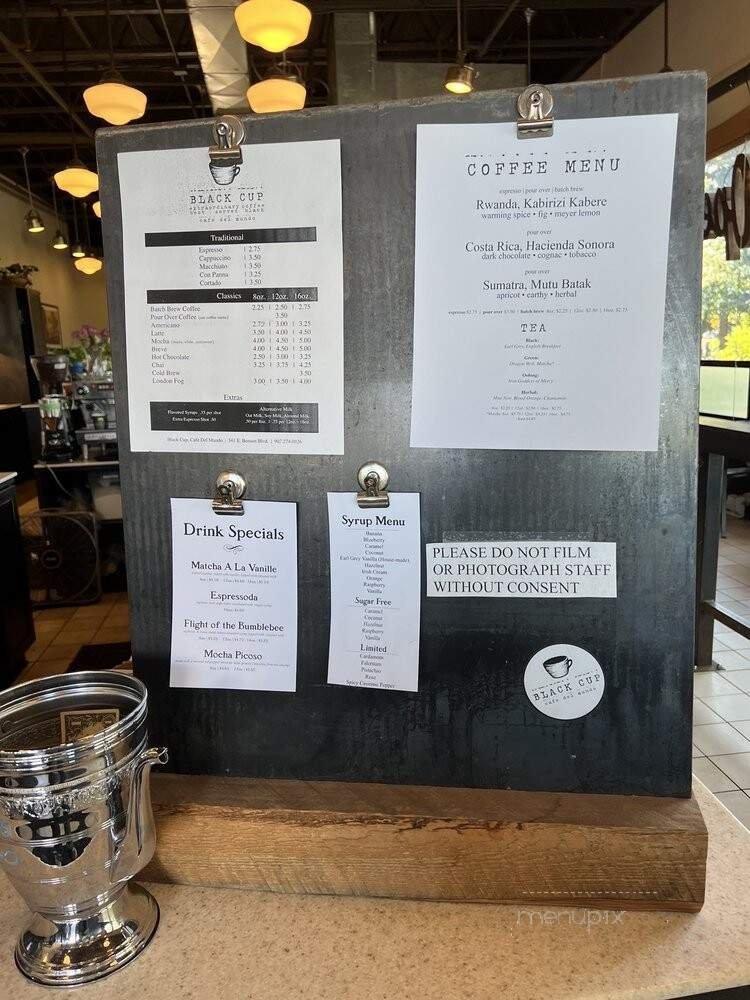 BLACK CUP
extraordinary coffee
cafe del mundo
Traditional
Espresso | 2.75
Cappuccino | 3.50
Macchiato | 3.50
Con Panna | 3.25
Cortado | 3.50
Classics 8oz. | 12oz. | 16oz.
Batch Brew Coffee 2.25 | 2.50 | 2.75
Pour Over Coffee 3.50
Americano 2.75 | 3.00 | 3.25
Latte 3.50 | 4.00 | 4.50
Mocha 4.00 | 4.50 | 5.00
Breve 4.00 | 4.50 | 5.00
Hot Chocolate 2.50 | 3.00 | 3.25
Chai 3.25 | 3.75 | 4.25
Cold Brew 3.50
London Fog 3.00 | 3.50 | 4.00
Extras
Flavored Syrups .35 per shot
Extra Espresso Shot .50
Alternative Milk
Oat Milk, Soy Milk, Almond Milk
Black Cup, Café Del Mundo | 341 E. Benson Blvd. | 907.274.0026
COFFEE MENU
espresso | pour over | batch brew
Rwanda, Kabirizi Kabere
warming spice • fig • meyer lemon
pour over
Costa Rica, Hacienda Sonora
dark chocolate • cognac • tobacco
pour over
Sumatra, Mutu Batak
apricot • earthy • herbal
espresso $2.75 | pour over $3.50 | batch brew 8oz. $2.25 | 12oz. $2.50 | 16oz. $2.75
TEA
Black:
Earl Grey, English Breakfast
Green:
Dragon Well, Matcha*
Oolong:
Iron Goddess of Mercy
Herbal:
Drink Specials
Matcha A La Vanille
Espressoda
Flight of the Bumblebee
Mocha Picoso
Syrup Menu
Banana
Blueberry
Caramel
Coconut
Earl Grey Vanilla (House-made)
Hazelnut
Irish Cream
Orange
Raspberry
Vanilla
Sugar Free
Caramel
Coconut
Hazelnut
Raspberry
Vanilla
Limited
Cardamom
Falernum
Pistachio
Rose
Spicy Cayenne Pepper
PLEASE DO NOT FILM
OR PHOTOGRAPH STAFF
WITHOUT CONSENT
BLACK CUP
cafe del mundo
menupix